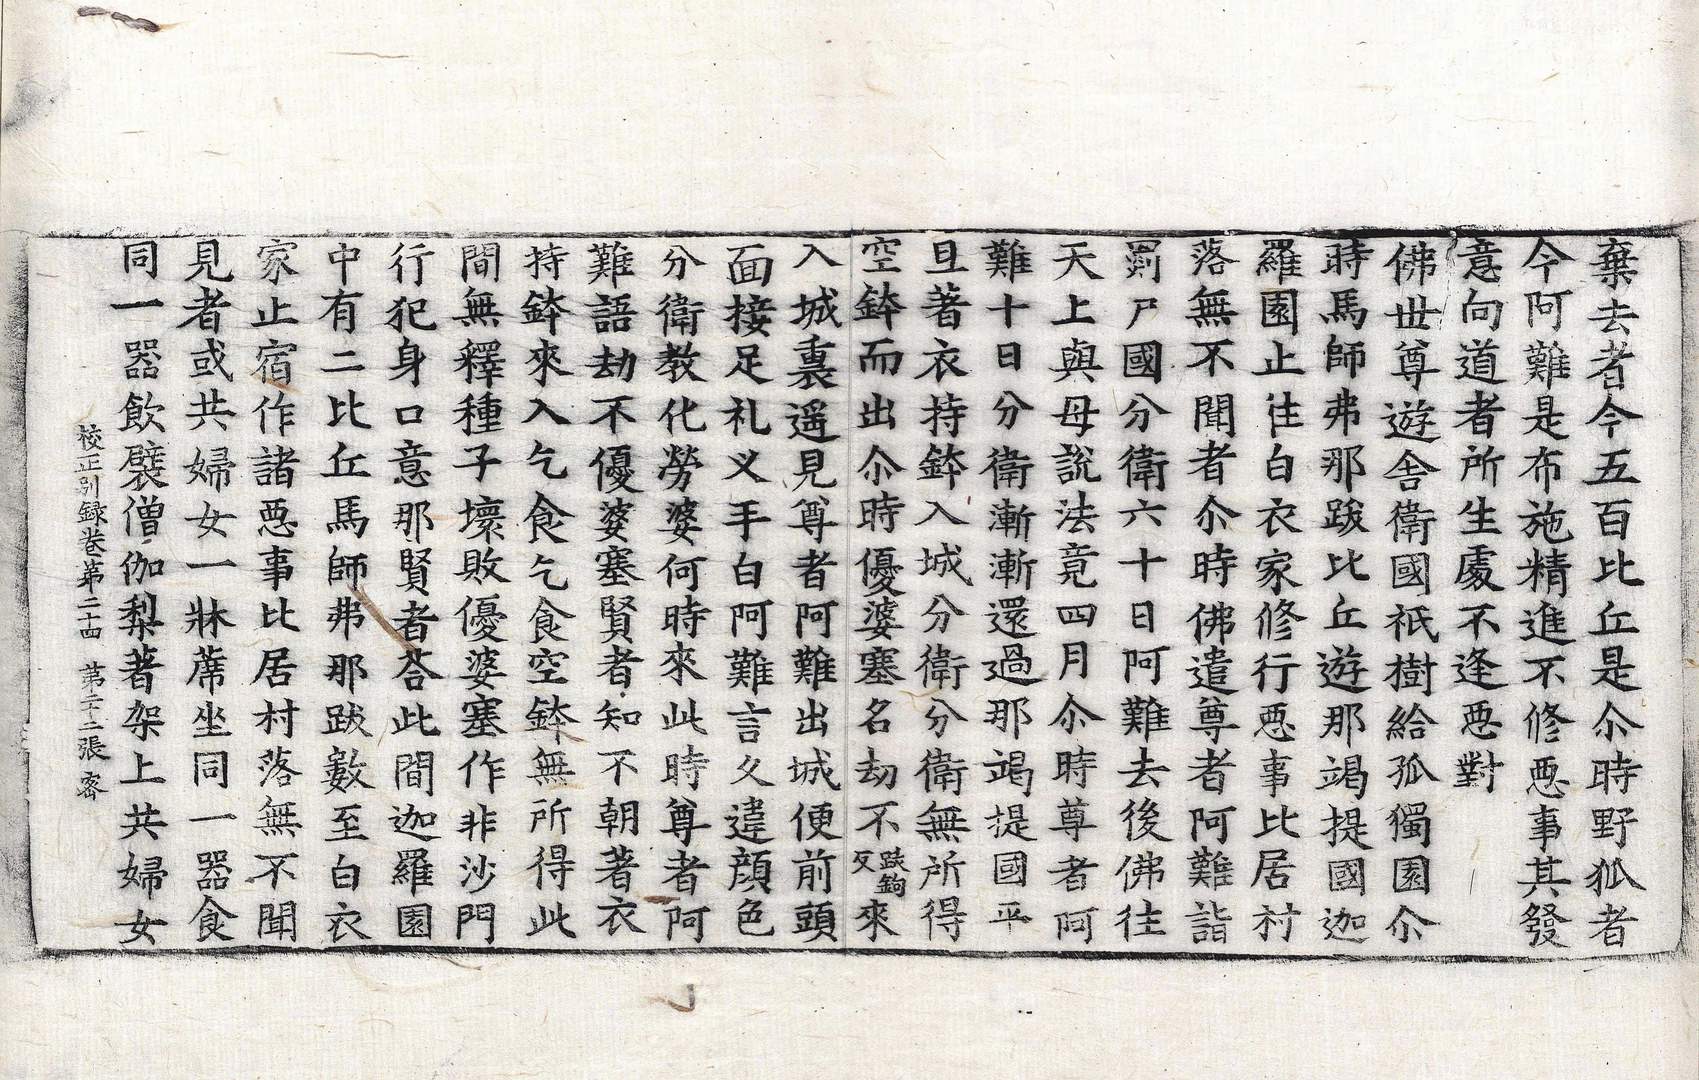 棄去者今五百比丘是尒時野狐者
今阿難是布施精進不修惡事其發
意向道者所生處不逢惡對
佛世尊遊舍衛國祇樹給孤獨園尒
時馬師弗那跋比丘遊那竭提國迦
羅園止住白衣家修行惡事比居村
落無不聞者尒時佛遣尊者阿難詣
罽尸國分衛六十日阿難去後佛往
天上與母說法竟四月尒時尊者阿
難十日分衛漸漸還過那竭提國平
旦著衣持鉢入城分衛分衛無所得
空鉢而出尒時優婆塞名劫不跌鉤反來
入城裏遥見尊者阿難出城便前頭
面接足礼叉手白阿難言久違顔色
分衛教化勞婆何時來此時尊者阿
難語劫不優婆塞賢者知不朝著衣
持鉢來入乞食乞食空鉢無所得此
間無釋種子壞敗優婆塞作非沙門
行犯身口意那賢者荅此間迦羅園
中有二比丘馬師弗那跋數至白衣
家止宿作諸惡事比居村落無不聞
見者或共婦女一牀蓆坐同一器食
同一器飲襞僧伽梨著架上共婦女
校正別録卷第二十四 第二十二張 宻